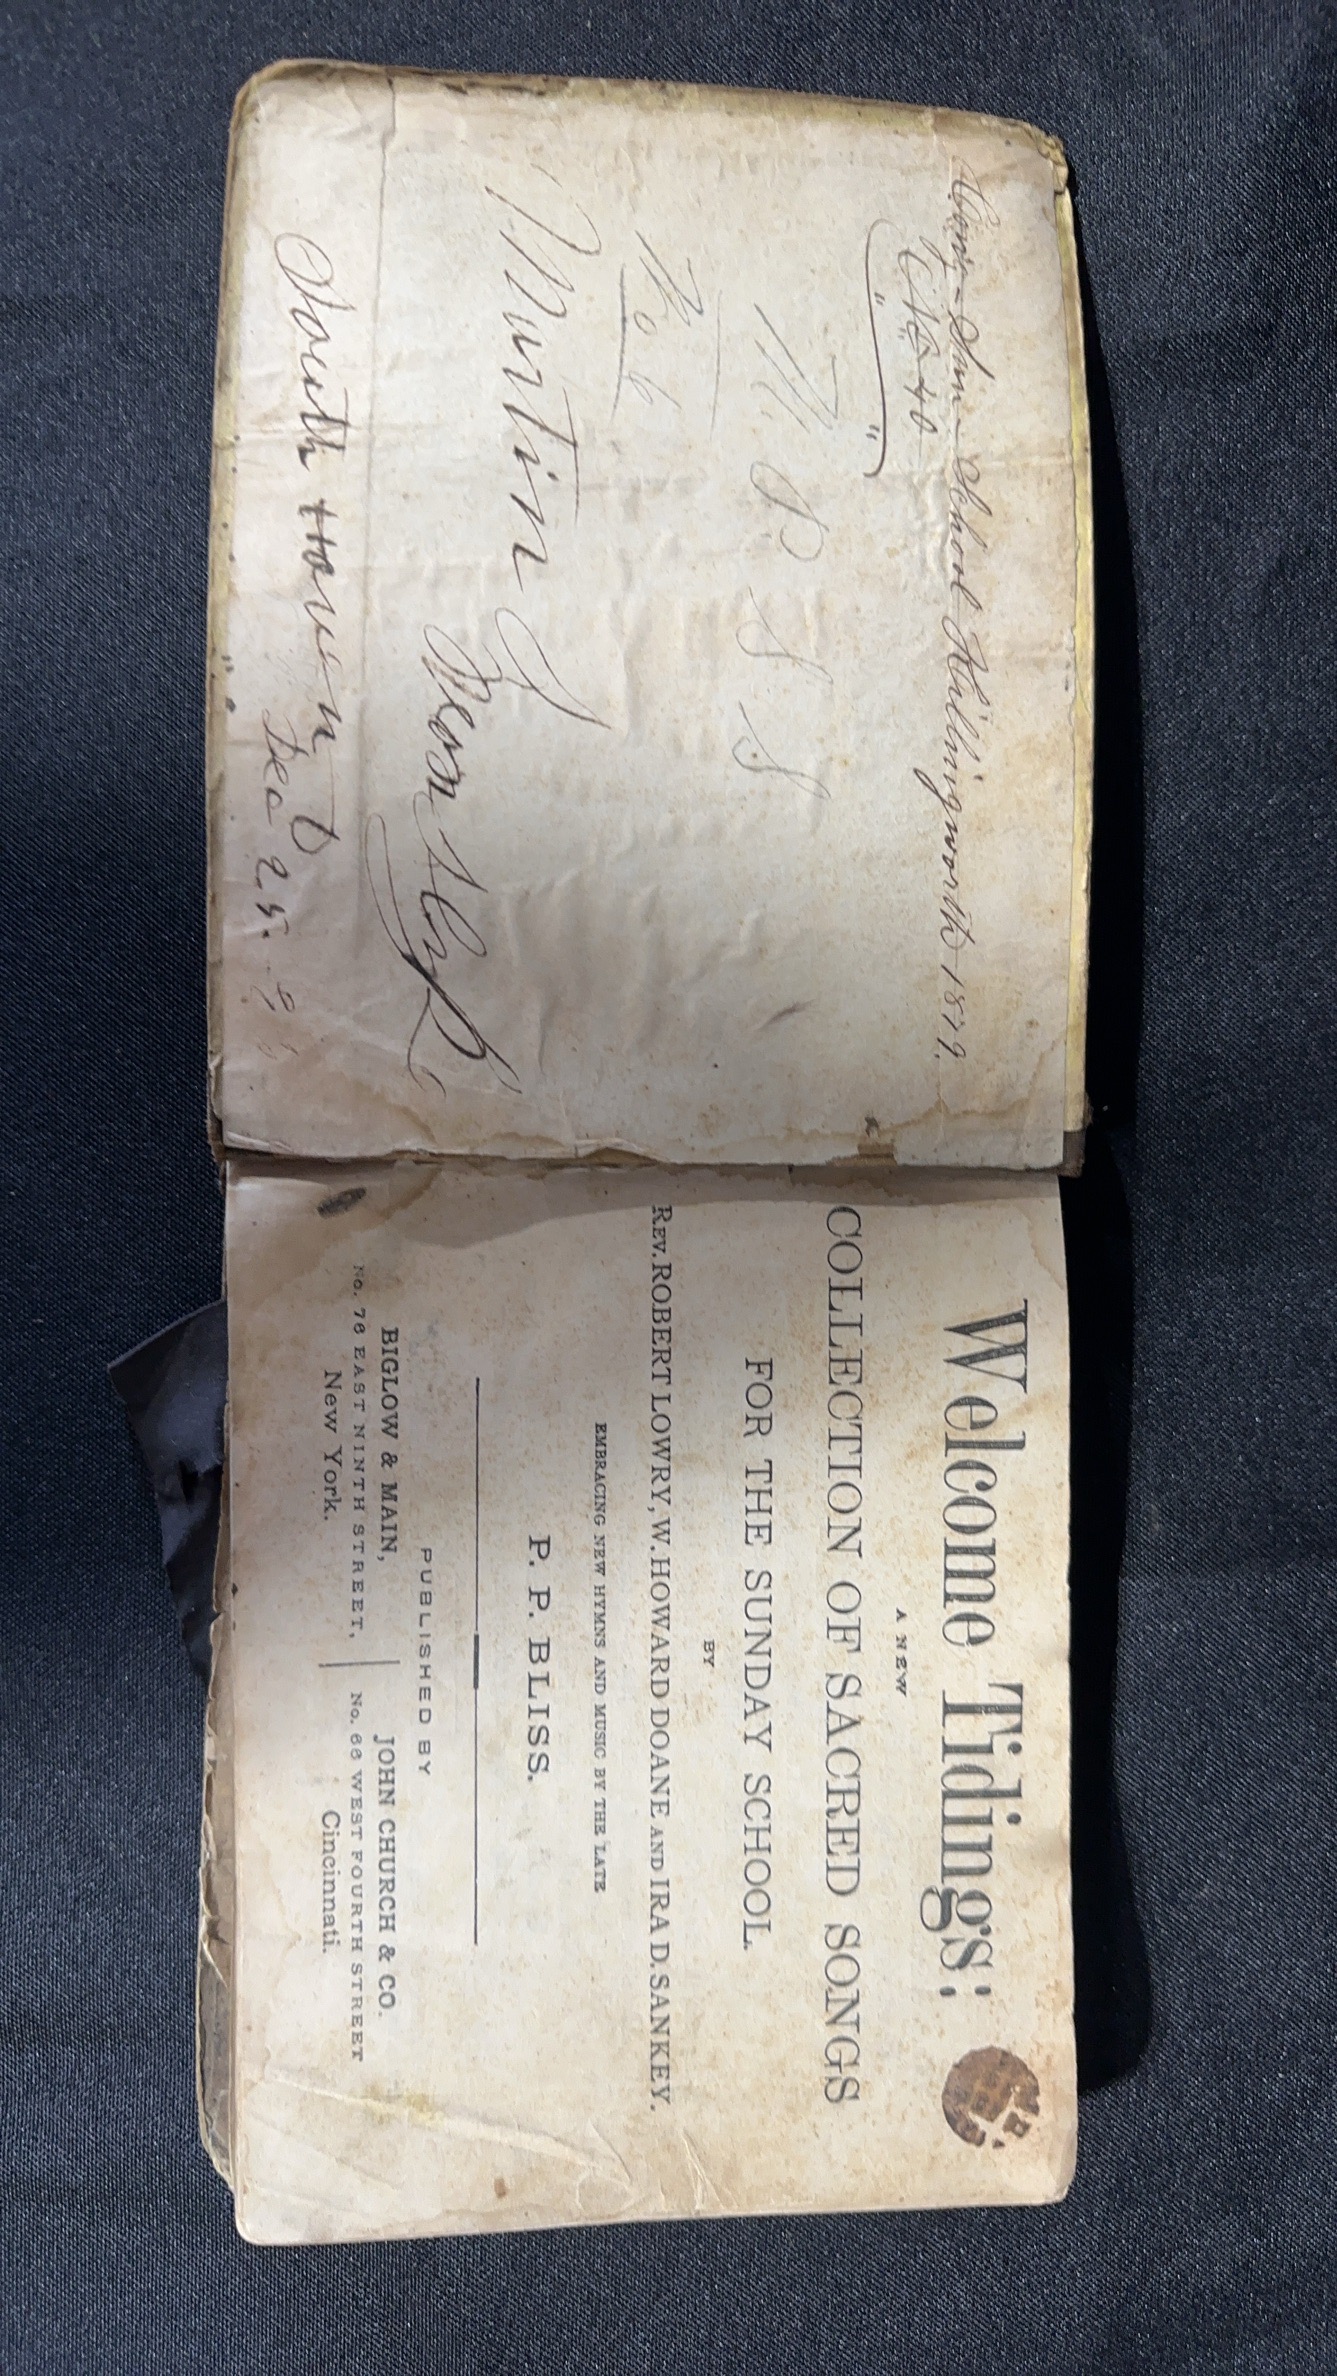 School Killingworth 1879.
M P S S
No 6
Martin J
South Haven
Dec 25.
Welcome Tidings:
A NEW
COLLECTION OF SACRED SONGS
FOR THE SUNDAY SCHOOL.
BY
REV. ROBERT LOWRY, W. HOWARD DOANE AND IRA D. SANKEY.
EMBRACING NEW HYMNS AND MUSIC BY THE LATE
P. P. BLISS.
PUBLISHED BY
BIGLOW & MAIN,
No. 76 EAST NINTH STREET,
New York.
JOHN CHURCH & CO.
No. 66 WEST FOURTH STREET
Cincinnati.